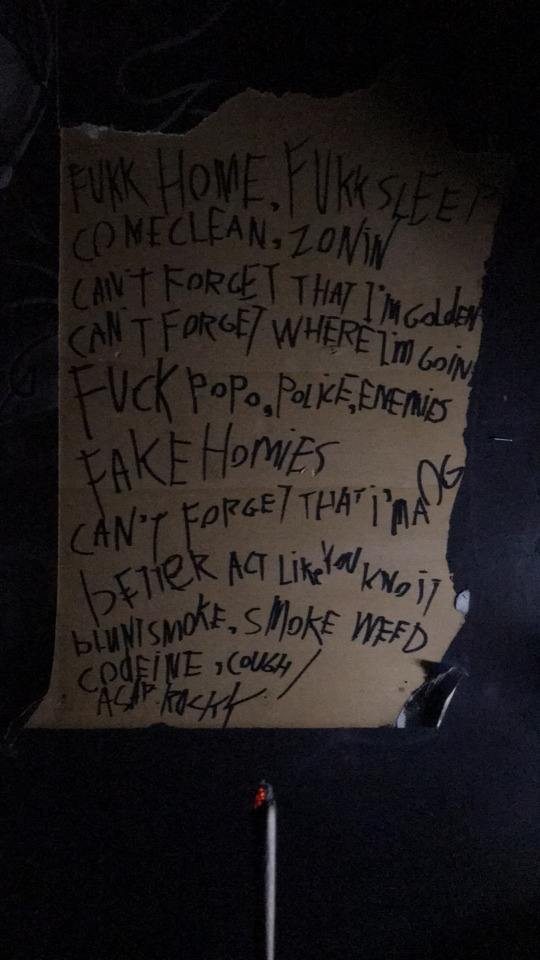 FUKK HOME, FUKK SLEEP
COMECLEAN, ZONIN
CAN'T FORGET THAT I'm GOLDEN
CAN'T FORGET WHERE I'm GOIN
FUCK POPO, POLiCE, ENEMIES
FAKE HOMIES
CAN'T FORGET THAT i'm A OG
bETTER ACT LiKe YOU KNO iT
bLUNTSMOKE, SMOKE WEED
CODEINE, COUGH
ASAP. ROCKY